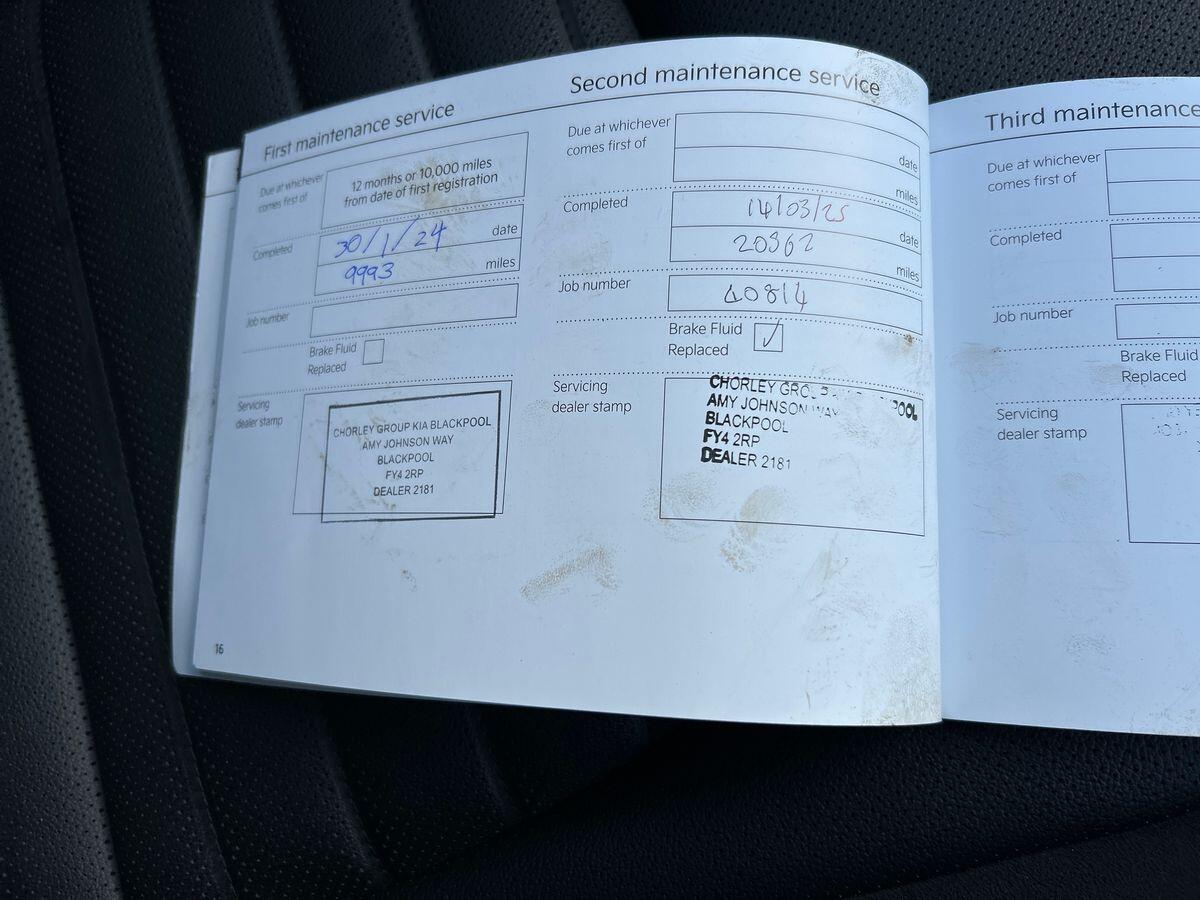 First maintenance service
Due at whichever
comes first of
12 months or 10,000 miles
from date of first registration
Completed
30/1/24 date
9993 miles
Job number
Brake Fluid
Replaced
Servicing
dealer stamp
CHORLEY GROUP KIA BLACKPOOL
AMY JOHNSON WAY
BLACKPOOL
FY4 2RP
DEALER 2181
16
Second maintenance service
Due at whichever
comes first of
date
miles
Completed
14/03/25 date
20862 miles
Job number
Brake Fluid
Replaced
Servicing
dealer stamp
CHORLEY
AMY JOHNSON WAY
BLACKPOOL
FY4 2RP
DEALER 2181
Third maintenance
Due at whichever
comes first of
Completed
Job number
Brake Fluid
Replaced
Servicing
dealer stamp